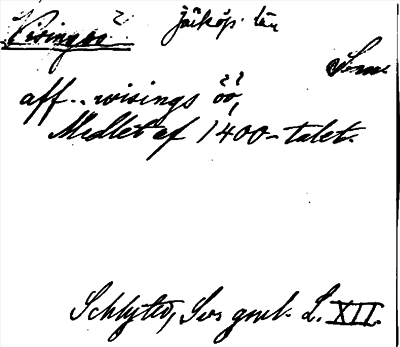 Visingsö jököp. län
Smål.
aff.. wisings öö,
Medlet af 1400-talet.
Schlyter, Sv's gml. L. XII.